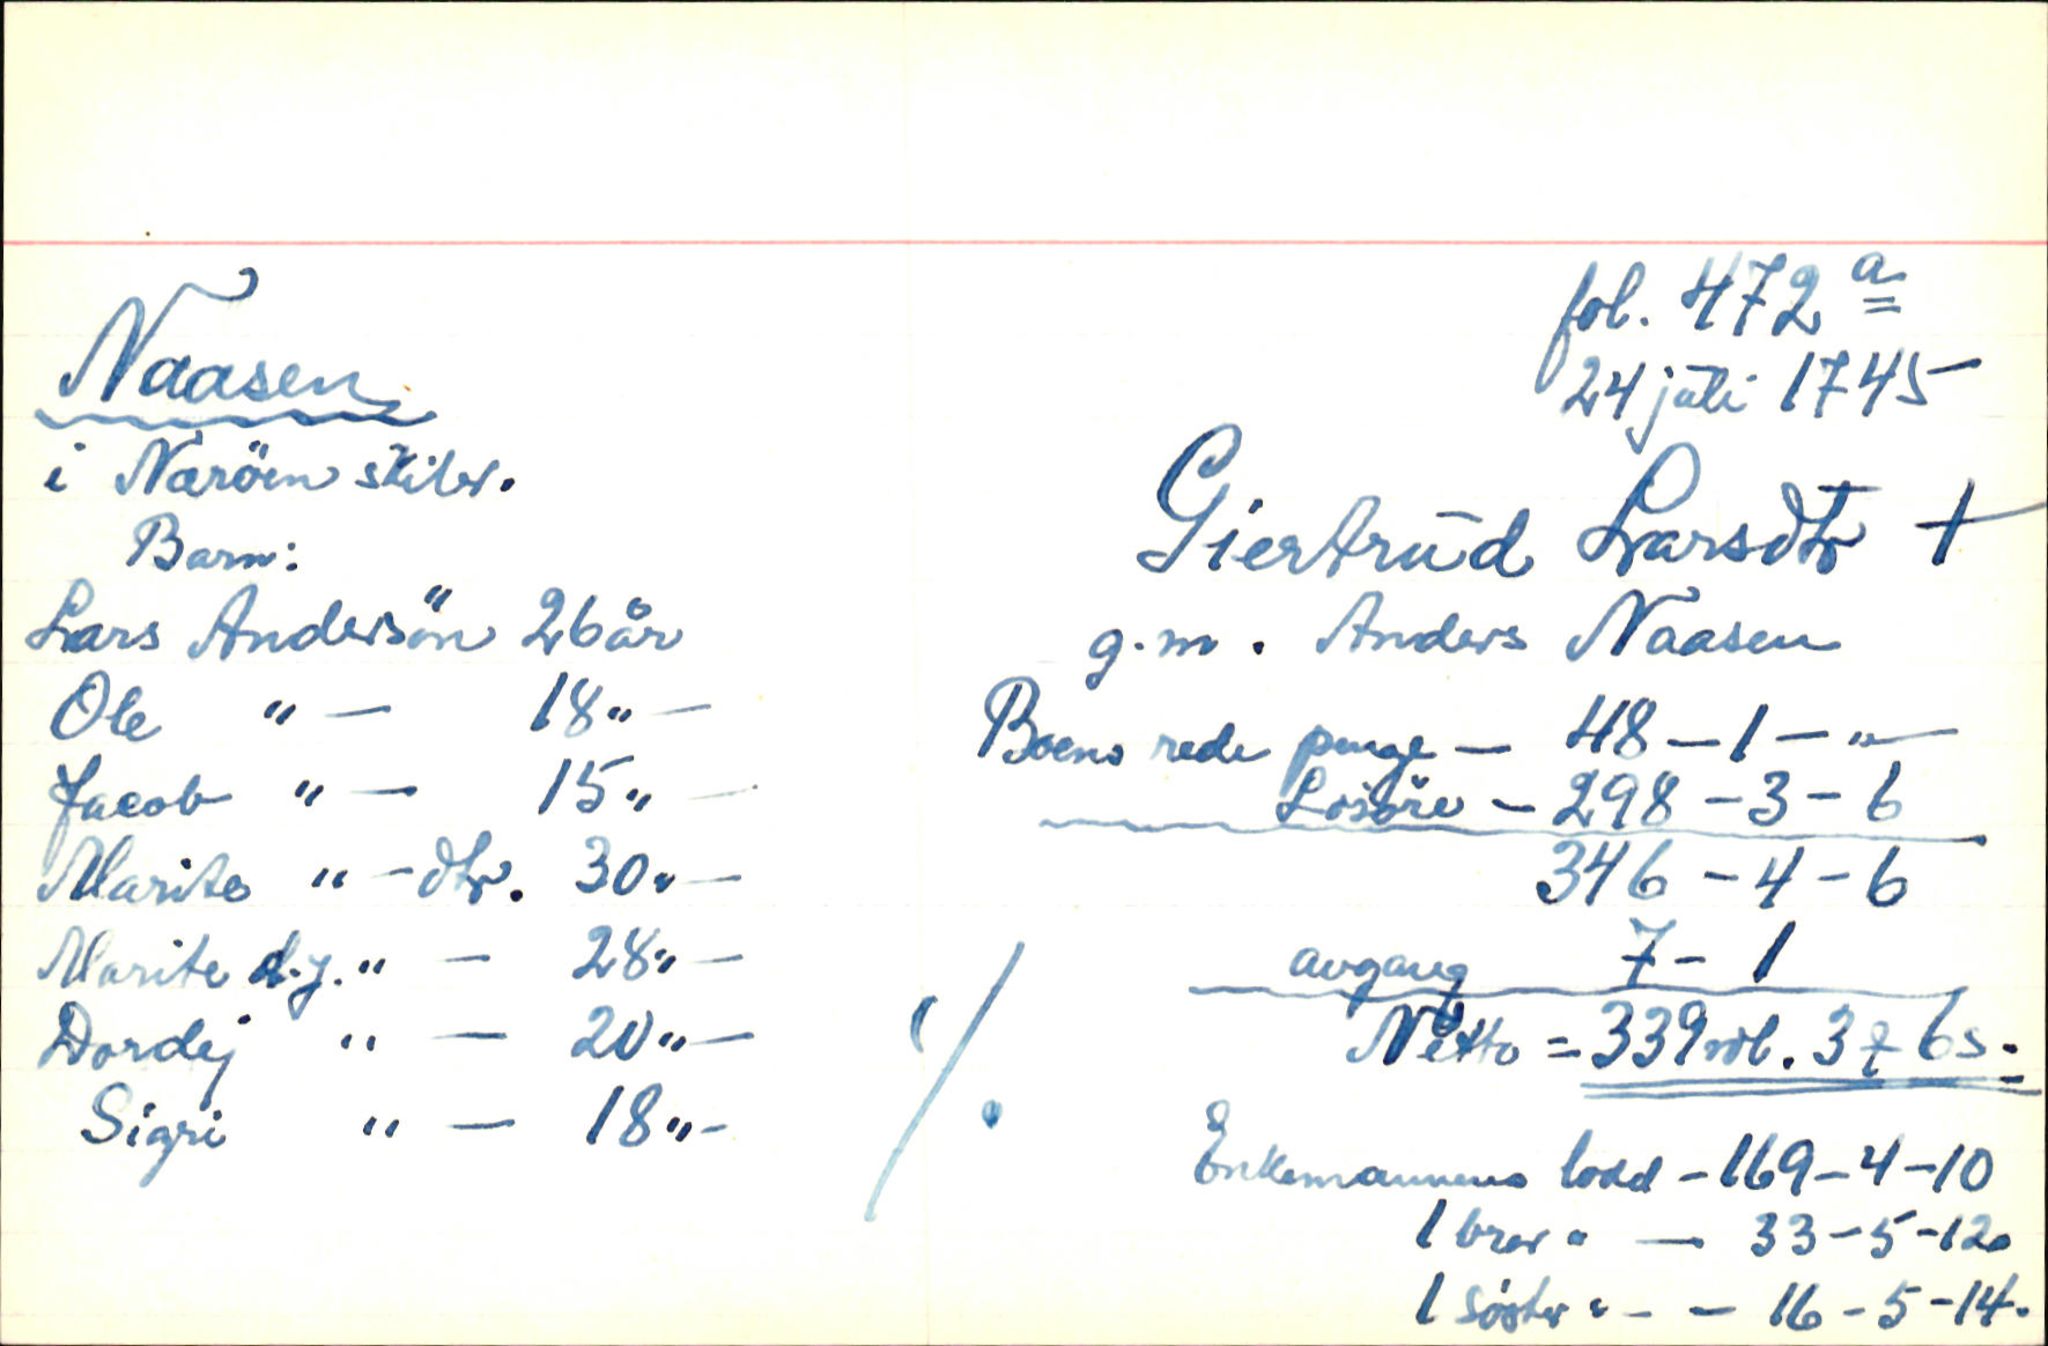 Naasen
i Næröen skibr.
Barn:
Lars Andersön 26 år
Ole " — 18 " —
Jacob " — 15 " —
Marite " - dtr. 30 " —
Marite d.y. " — 28 " —
Dordej " — 20 " —
Sigri " — 18 " -
./.
fol. 472 a
24 juli 1745
Giertrud Larsdtr +
g.m. Anders Naasen
Boens rede penge — 48 — 1 — " —
Lösöre — 298 — 3 — 6
346 — 4 — 6
avgang 7 — 1
Netto = 339 rdl. 3 ₰ 6 s.
Enkemannens lodd — 169 — 4 — 10
1 bror " — 33 — 5 — 12
1 söster " - — 16 — 5 — 14.